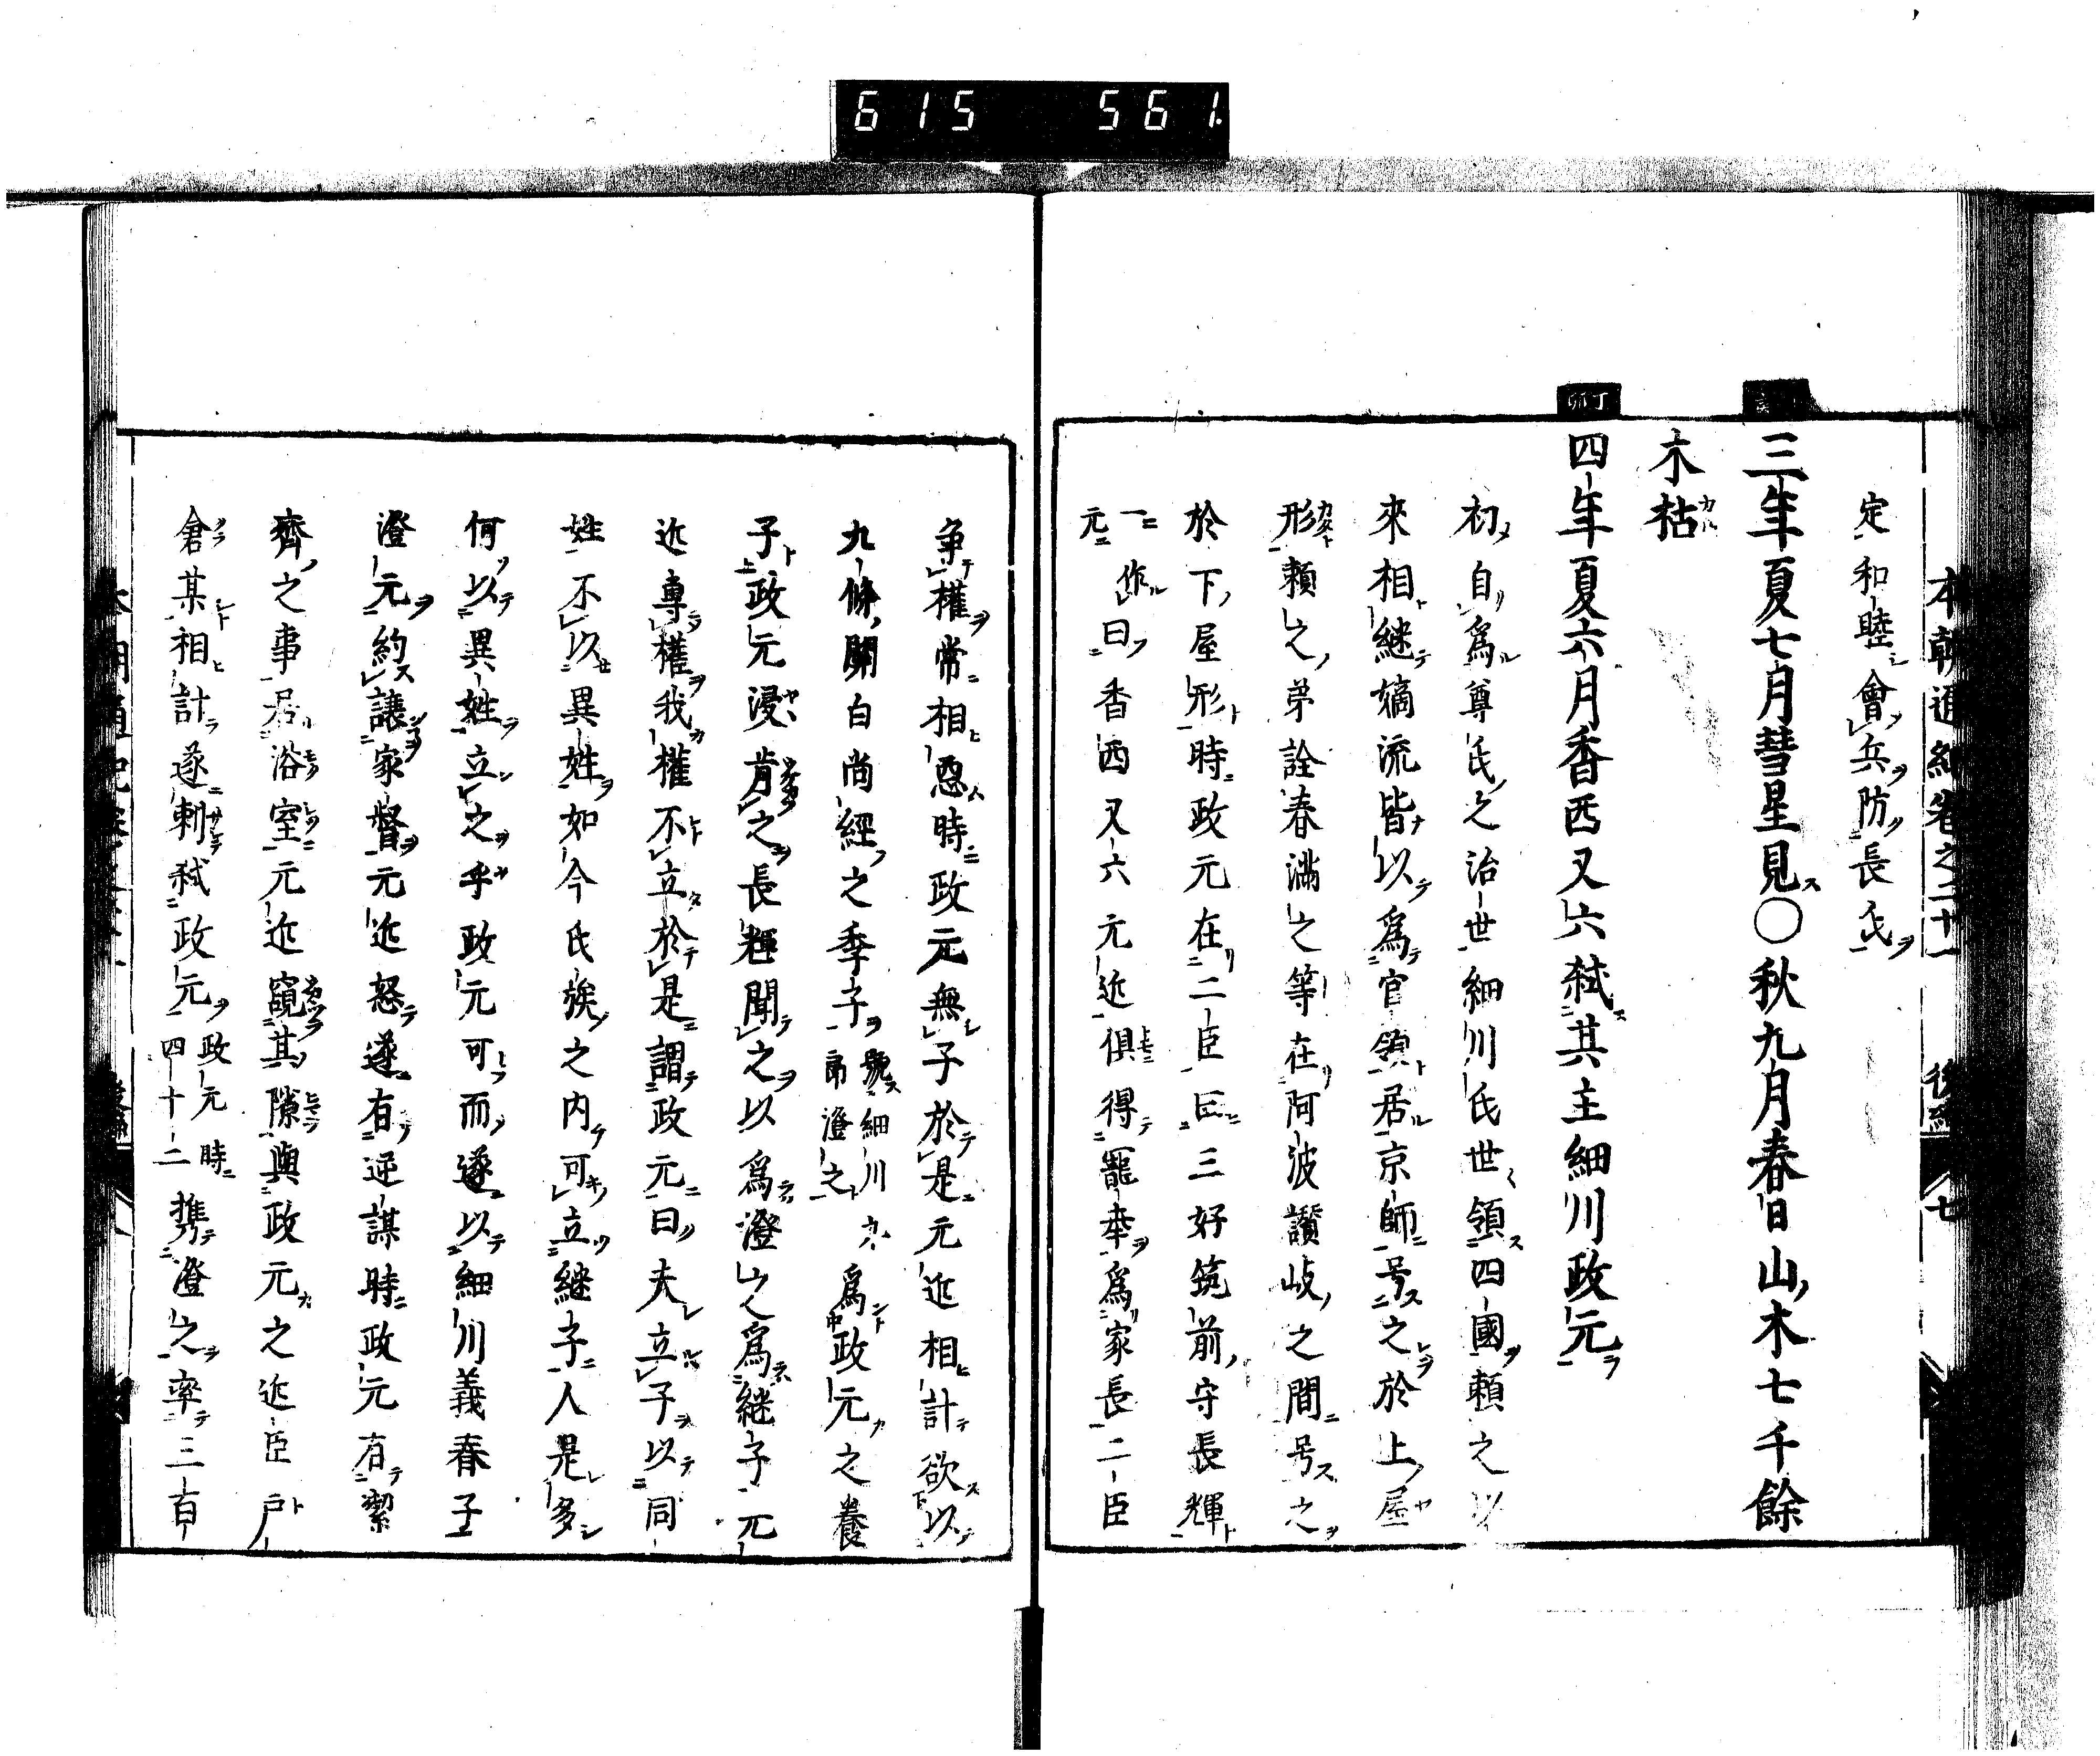 615 561.
本朝通紀卷之二十一 後編 七
定和睦會兵防長氏
三年夏七月彗星見〇秋九月春日山木七千餘
木枯
丁卯
四年夏六月香西又六弑其主細川政元
初自爲尊氏之治世細川氏世〻領四國賴之以
來相継嫡流皆以爲官領居京師号之於上屋
形賴之弟詮春滿之等在阿波讃岐之間号之
於下屋形時政元在二臣曰三好筑前守長輝
一作元曰香西又六元近倶得寵幸爲家長二臣
争權常相惡時政元無子於是元近相計欲以
九條關白尚經之季子號細川九郎澄之爲政元之養
子政元浸肯之長輝聞之以爲澄之爲継子元
近專權我權不立於是謂政元曰夫立子以同
姓不以異姓如今氏族之内可立継子人是多
何以異姓立之乎政元可而遂以細川義春子
澄元約讓家督元近怒遂有逆謀時政元有潔
齋之事居浴室元近窺其隙與政元之近臣戸
倉某相計遂刺弑政元政元時四十二携澄之率三百